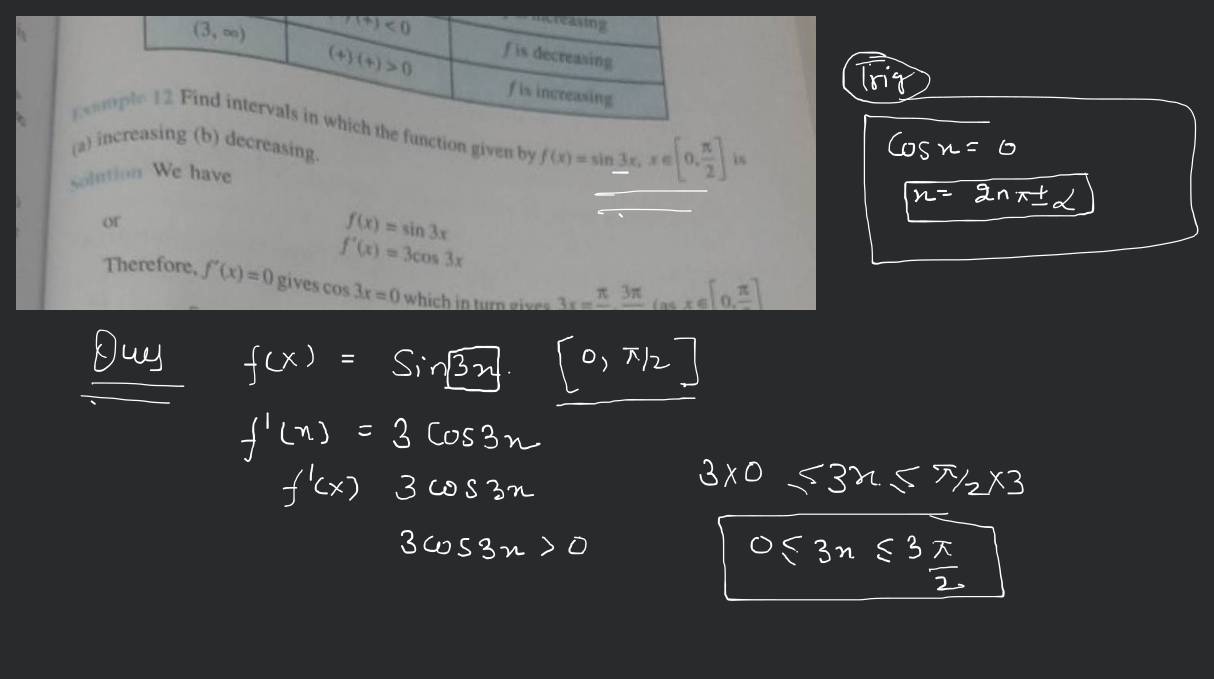 (3, ∞)
(+) < 0
f is decreasing
(+) (+) > 0
f is increasing
Example 12 Find intervals in which the function given by f(x) = sin 3x, x ∈ [0, π/2] is
(a) increasing (b) decreasing.
Solution We have
f(x) = sin 3x
or
f'(x) = 3cos 3x
Therefore, f'(x) = 0 gives cos 3x = 0 which in turn gives 3x = π 3π (as x ∈ [0, π
Trig
Cos x = 0
x = 2nπ ± α
Ques f(x) = Sin 3x. [0, π/2]
f'(x) = 3 Cos3x
f'(x) 3 cos 3x
3×0 ≤ 3x ≤ π/2×3
3cos3x > 0
0 ≤ 3x ≤ 3π/2